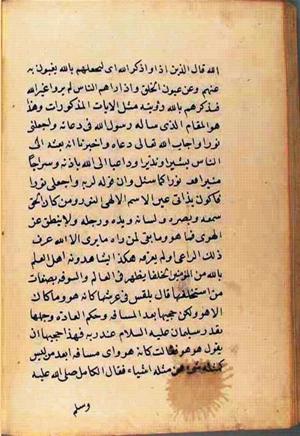 الله قال الذين اذا راوا ذكر الله اى لتحملهم بالله يغيبون به
عنهم وعن عيون الخلق واذا راهم الناس لم يروا غير الله
فذكرهم بالله رؤيته مثل الايات المذكورات وهذا
هو المقام الذى ساله رسول الله فى دعائه واجعلنى
نورا واجاب الله تعالى دعاه واخبرنا انه بعثه الى
الناس بشيرا ونذيرا وداعيا الى الله باذنه وسراجا
منيرا فعد نورا كما سئل وان قوله لربه واجعلنى نورا
فاكون بذاتى عين الاسم الالهى النور ومن كان الحق
سمعه وبصره ولسانه ويده ورجله ولا ينطق عن
الهوى فما هو هو وما بقى لمن راه ما يرى الا الله عرف
ذلك الراعى ولم يعرفه هكذا يشاهدونه اهل العلم
بالله من المؤمنين الخلفا يظهر فى العالم والسوقه بصفات
من استخلفها قال بلقيس فى عرشها كانه هو وما كان
الا هو ولكن حجبها بعد المسافه وحكم العاده وجهلها
بقدر سليمان عليه السلام عند ربه فهذا حجبها ان
يقول هو هو فقالت كانه هو واى مسافه ابعد من ليس
كمثله شى من مثله اشياء فقال الكامل صلى الله عليه
وسلم